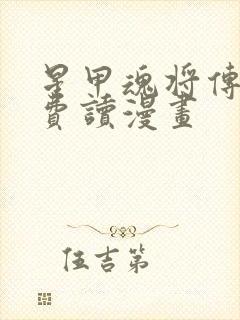 星甲魂將傳
費讀漫畫
伍吉第